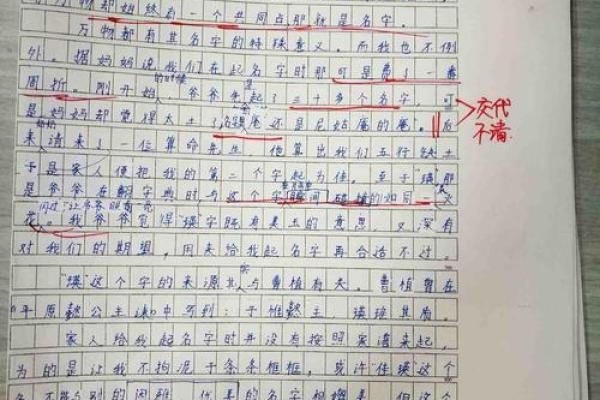 万物却始终有一个共同点那就是名字。
万物都有其名字的特殊意义。而我也不例
外。据妈妈说我们在起名字时那可是费了一番
的时候 是
周折。刚开始，爷爷先起了三十多个名字，可
是妈妈却觉得太土
还是尼姑庵的庵。后
交代
不清
来请来了一位算命先生，他算出我们五行缺土
于是家人便把我的第二个字起为佳。至于“瑛”那
是爷爷在翻字典时与这个字瞬间 的如同 火
花。我爷爷觉得瑛字既有美玉的意思，又深有
对我们的期望，用来给我起名字再合适不过。
“瑛”这个字的来源其与曹植有关。曹植曾在
《平原懿公主诔》中写到：于惟懿主，瑛瑶其质。
家人给我起名字时并没有按照家谱来起，
为的是让我不拘泥于条条框框。或许“佳瑛”这个